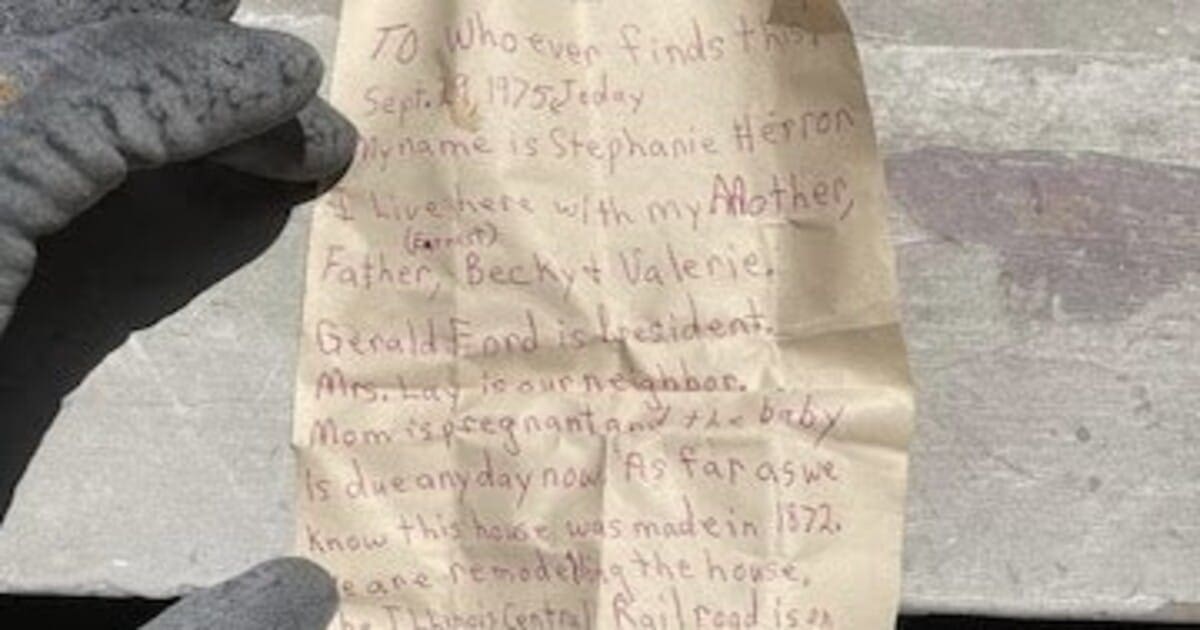 To Whoever finds this,
Sept. 19, 1975
My name is Stephanie Herron
I Live here with my Mother,
(Earnest)
Father, Becky + Valerie.
Gerald Ford is President.
Mrs. Lay is our neighbor.
Mom is pregnant and the baby
is due any day now. As far as we
know this house was made in 1872.
we are remodeling the house,
the Illinois Central Railroad is on